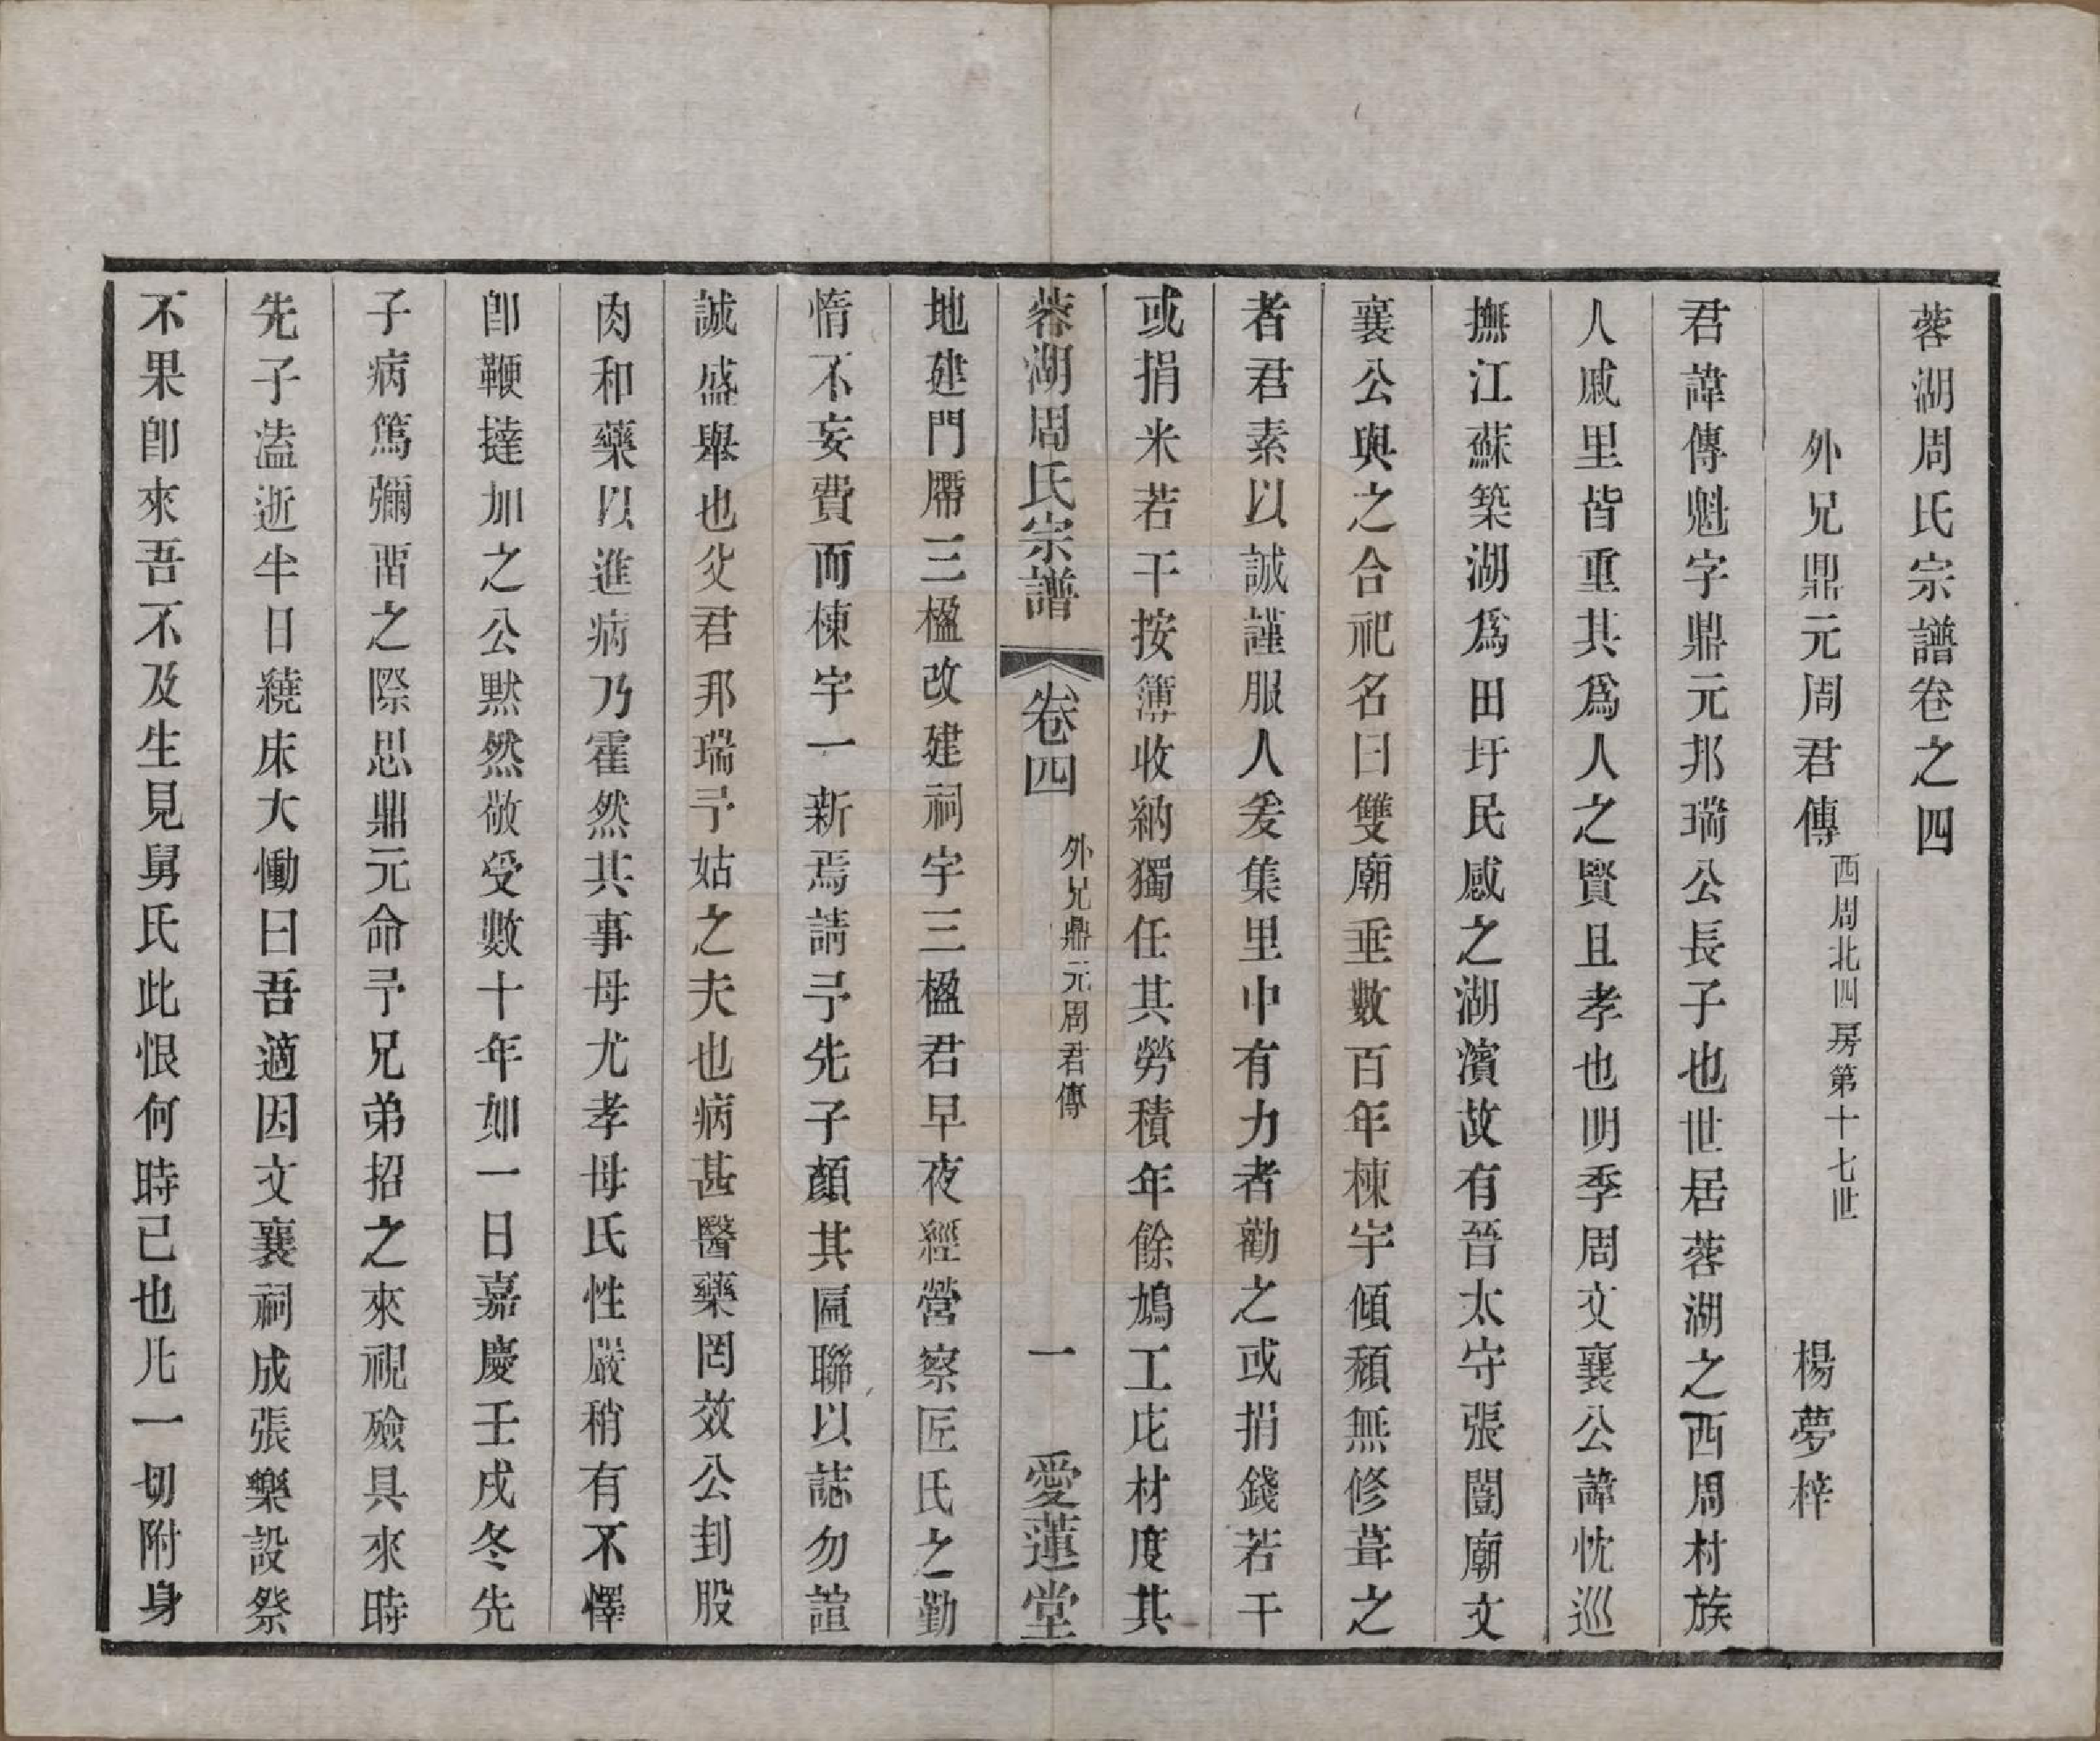 蓉湖周氏宗譜卷之四
外兄鼎元周君傳西周北四房第十七世 楊夢梓
君諱傳魁字鼎元邦瑞公長子也世居蓉湖之西周村族
人戚里皆重其爲人之賢且孝也明季周文襄公諱忱巡
撫江蘇築湖爲田圩民感之湖濱故有晉太守張闓廟文
襄公與之合祀名曰雙廟垂數百年棟宇傾頹無修葺之
者君素以誠謹服人爰集里中有力者勸之或捐錢若干
或捐米若干按簿收納獨任其勞積年餘鳩工庀材度其
蓉湖周氏宗譜 卷四 外兄鼎元周君傳 一 愛蓮堂
地建門隮三楹改建祠宇三楹君早夜經營察匠氏之勤
惰不妄費而棟宇一新焉請予先子顏其匾聯以誌勿諠
誠盛舉也父君邦瑞予姑之夫也病甚醫藥罔效公刲股
肉和藥以進病乃霍然其事母尤孝母氏性嚴稍有不懌
卽鞭撻加之公默然敬受數十年如一日嘉慶壬戌冬先
子病篤彌留之際思鼎元命予兄弟招之來視殮具來時
先子溘逝半日繞床大慟曰吾適因文襄祠成張樂設祭
不果卽來吾不及生見舅氏此恨何時已也凡一切附身